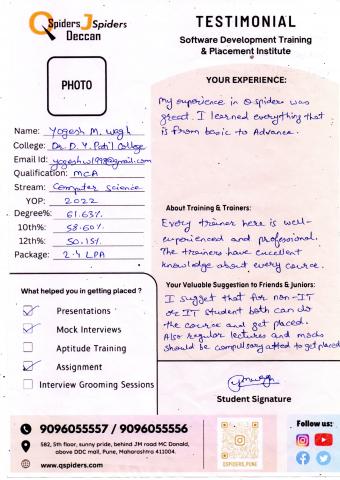 QSpiders JSpiders
Deccan
TESTIMONIAL
Software Development Training
& Placement Institute
PHOTO
Name: Yogesh M. Wagh
College: Dr. D. Y. Patil College
Email Id: yogeshw1998@gmail.com
Qualification: MCA
Stream: Computer Science
YOP: 2022
Degree%: 61.63%
10th%: 58.60%
12th%: 50.15%
Package: 2.4 LPA
What helped you in getting placed ?
Presentations
Mock Interviews
Aptitude Training
Assignment
Interview Grooming Sessions
YOUR EXPERIENCE:
My experience in Qspiders was
great. I learned everything that
is from basic to Advance.
About Training & Trainers:
Every trainer here is well-
experienced and professional.
The trainers have excellent
knowledge about every course.
Your Valuable Suggestion to Friends & Juniors:
I suggest that for non-IT
or IT student both can do
the course and get placed.
Also regular lectures and mocks
should be compulsory to get placed
Student Signature
9096055557 / 9096055556
582, 5th floor, sunny pride, behind JM road MC Donald,
above DDC mall, Pune, Maharashtra 411004.
www.qspiders.com
QSPIDERS_PUNE
Follow us: